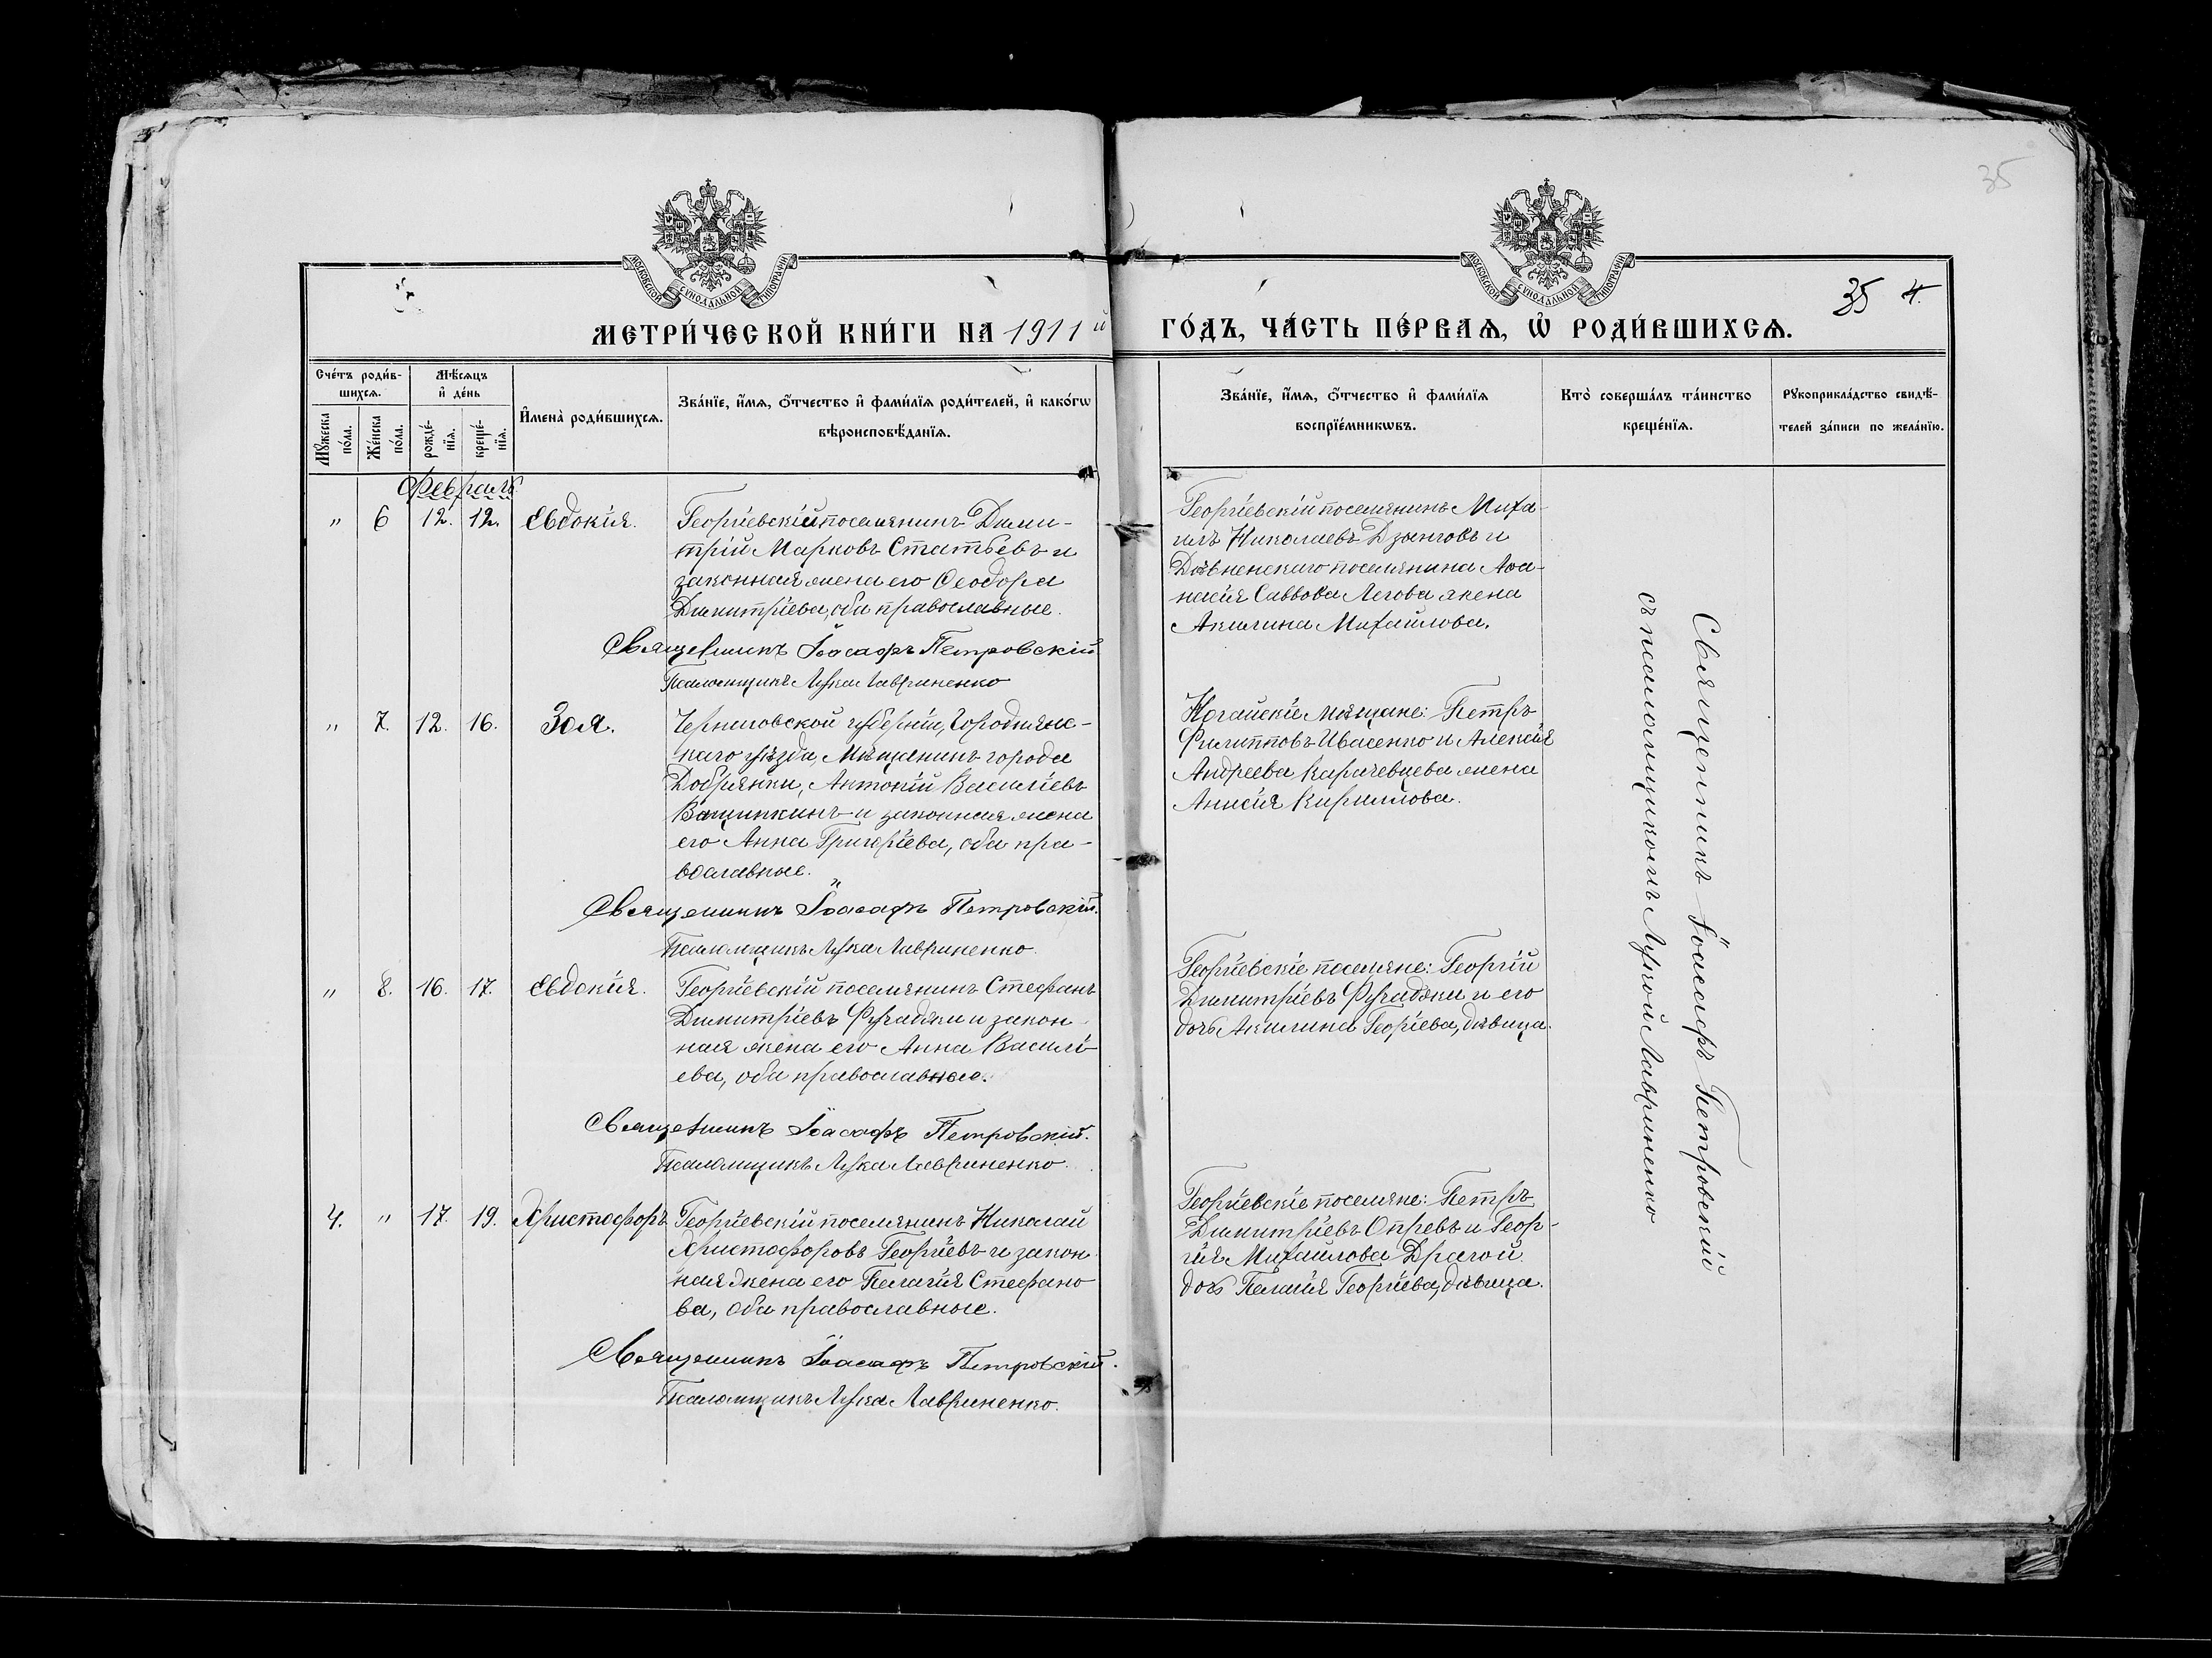 35
МОСКОВСКОЙ СУНОДАЛЬНОЙ ТИПОГРАФІИ
МОСКОВСКОЙ СУНОДАЛЬНОЙ ТИПОГРАФІИ
35 4.
МЕТРИ́ЧЕСКОЙ КНИ́ГИ НА 1911й ГО́ДЪ, ЧА́СТЬ ПЕ́РВАѦ, Ѡ҆ РОДИ́ВШИХСѦ.
Сче́тъ роди́в-
шихсѧ.
Мꙋжеска
по́ла.
Же́нска
по́ла.
Мѣ́сѧцъ
и҆ де́нь
рожде́-
нїѧ.
креще́-
нїѧ.
И҆мена̀ роди́вшихсѧ.
Зва́нїе, и҆́мѧ, ѻ҆́тчество и҆ фами́лїѧ роди́телей, и҆ како́гѡ
вѣроисповѣ́данїѧ.
Зва́нїе, и҆́мѧ, ѻ҆́тчество и҆ фами́лїѧ
воспрїе́мникѡвъ.
Кто̀ соверша́лъ та́инство
креще́нїѧ.
Рꙋкоприкла́дство свидѣ́-
телей за́писи по жела́нїю.
Февраль
" 6 12. 12. Евдокія.
Георгіевскій поселянинъ Дими-
трій Марковъ Статьевъ и
законная жена его Ѳеодора
Димитріева, оба православные.
Священникъ Іоасафъ Петровскій
Псаломщикъ Лука Лавриненко
Георгіевскій поселянинъ Миха-
илъ Николаевъ Дзынговъ и
поселянина Аѳа-
насія Саввова Легова жена
Акилина Михайлова.
" 7. 12. 16. Зоя.
Черниговской губерніи, Городнянс-
каго уѣзда, Мѣщанинъ города
Добрянки, Антоній Василіевъ
и законная жена
его Анна Григоріева, оба пра-
вославные.
Священникъ Іоасафъ Петровскій.
Псаломщикъ Лука Лавриненко.
Ногайскіе мѣщане: Петръ
Филипповъ Ивасенко и Алексія
Андреева Карачевцева жена
Анисія Кириллова.
" 8. 16. 17. Евдокія.
Георгіевскій поселянинъ Стефанъ
Димитріевъ Фучаджи и закон-
ная жена его Анна Василі-
ева, оба православные.
Священникъ Іоасафъ Петровскій.
Псаломщикъ Лука Лавриненко.
Георгіевскіе поселяне: Георгій
Димитріевъ Фучаджи и его
дочь Акилина Георгіева, дѣвица.
4. " 17. 19. Христофоръ
Георгіевскій поселянинъ Николай
Христофоровъ Георгіевъ и закон-
ная жена его Пелагія Стефано
ва, оба православные.
Священникъ Іоасафъ Петровскій.
Псаломщикъ Лука Лавриненко.
Георгіевскіе поселяне: Петръ
Димитріевъ Опревъ и Геор-
гія Михайлова Драгой
дочь Пелагія Георгіева, дѣвица.
Священникъ Іоасафъ Петровскій
съ псаломщикомъ Лукой Лавриненко